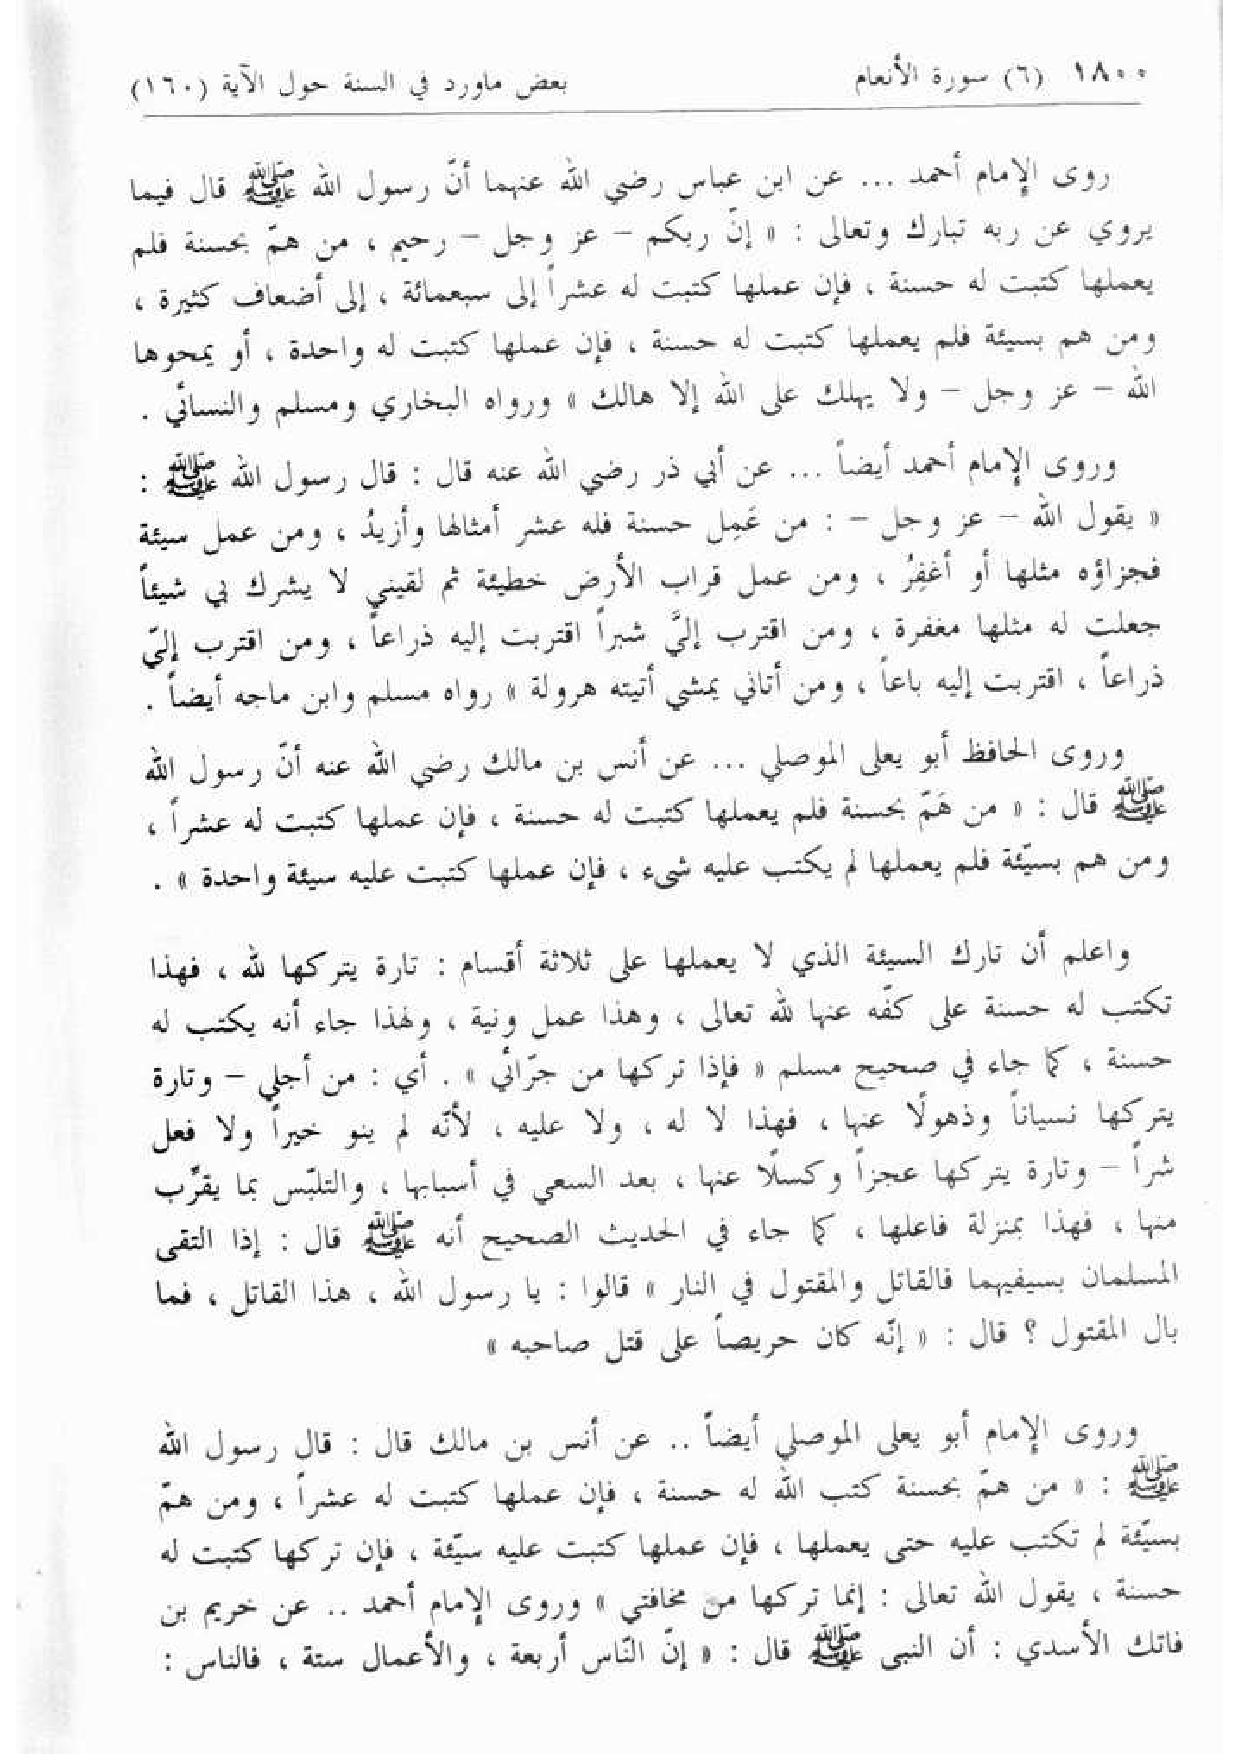 ١٨٠٠ (٦) سورة الأنعام بعض ماورد في السنة حول الآية (١٦٠)
روى الإمام أحمد ... عن ابن عباس رضي الله عنهما أنّ رسول الله ﷺ قال فيما
يروي عن ربه تبارك وتعالى : « إنّ ربكم – عز وجل – رحيم ، من همّ بحسنة فلم
يعملها كتبت له حسنة ، فإن عملها كتبت له عشراً إلى سبعمائة ، إلى أضعاف كثيرة ،
ومن هم بسيئة فلم يعملها كتبت له حسنة ، فإن عملها كتبت له واحدة ، أو يمحوها
الله – عز وجل – ولا يهلك على الله إلا هالك » ورواه البخاري ومسلم والنسائي .
وروى الإمام أحمد أيضاً ... عن أبي ذر رضي الله عنه قال : قال رسول الله ﷺ :
« يقول الله – عز وجل – : من عَمِل حسنة فله عشر أمثالها وأزيدُ ، ومن عمل سيئة
فجزاؤه مثلها أو أغفِرُ ، ومن عمل قراب الأرض خطيئة ثم لقيني لا يشرك بي شيئاً
جعلت له مثلها مغفرة ، ومن اقترب إليَّ شبراً اقتربت إليه ذراعاً ، ومن اقترب إليّ
ذراعاً ، اقتربت إليه باعاً ، ومن أتاني يمشي أتيته هرولة » رواه مسلم وابن ماجه أيضاً .
وروى الحافظ أبو يعلى الموصلي ... عن أنس بن مالك رضي الله عنه أنّ رسول الله
ﷺ قال : « من هَمّ بحسنة فلم يعملها كتبت له حسنة ، فإن عملها كتبت له عشراً ،
ومن هم بسيّئة فلم يعملها لم يكتب عليه شيء ، فإن عملها كتبت عليه سيئة واحدة » .
واعلم أن تارك السيئة الذي لا يعملها على ثلاثة أقسام : تارة يتركها لله ، فهذا
تكتب له حسنة على كفّه عنها لله تعالى ، وهذا عمل ونية ، ولهذا جاء أنه يكتب له
حسنة ، كما جاء في صحيح مسلم « فإذا تركها من جرّائي » . أي : من أجلي – وتارة
يتركها نسياناً وذهولًا عنها ، فهذا لا له ، ولا عليه ، لأنّه لم ينو خيراً ولا فعل
شراً – وتارة يتركها عجزاً وكسلًا عنها ، بعد السعي في أسبابها ، والتلبّس بما يقرّب
منها ، فهذا بمنزلة فاعلها ، كما جاء في الحديث الصحيح أنه ﷺ قال : إذا التقى
المسلمان بسيفيهما فالقاتل والمقتول في النار » قالوا : يا رسول الله ، هذا القاتل ، فما
بال المقتول ؟ قال : « إنّه كان حريصاً على قتل صاحبه »
وروى الإمام أبو يعلى الموصلي أيضاً .. عن أنس بن مالك قال : قال رسول الله
ﷺ : « من همّ بحسنة كتب الله له حسنة ، فإن عملها كتبت له عشراً ، ومن همّ
بسيّئة لم تكتب عليه حتى يعملها ، فإن عملها كتبت عليه سيّئة ، فإن تركها كتبت له
حسنة ، يقول الله تعالى : إنما تركها من مخافتي » وروى الإمام أحمد .. عن خريم بن
فاتك الأسدي : أن النبي ﷺ قال : « إنّ النّاس أربعة ، والأعمال ستة ، فالناس :